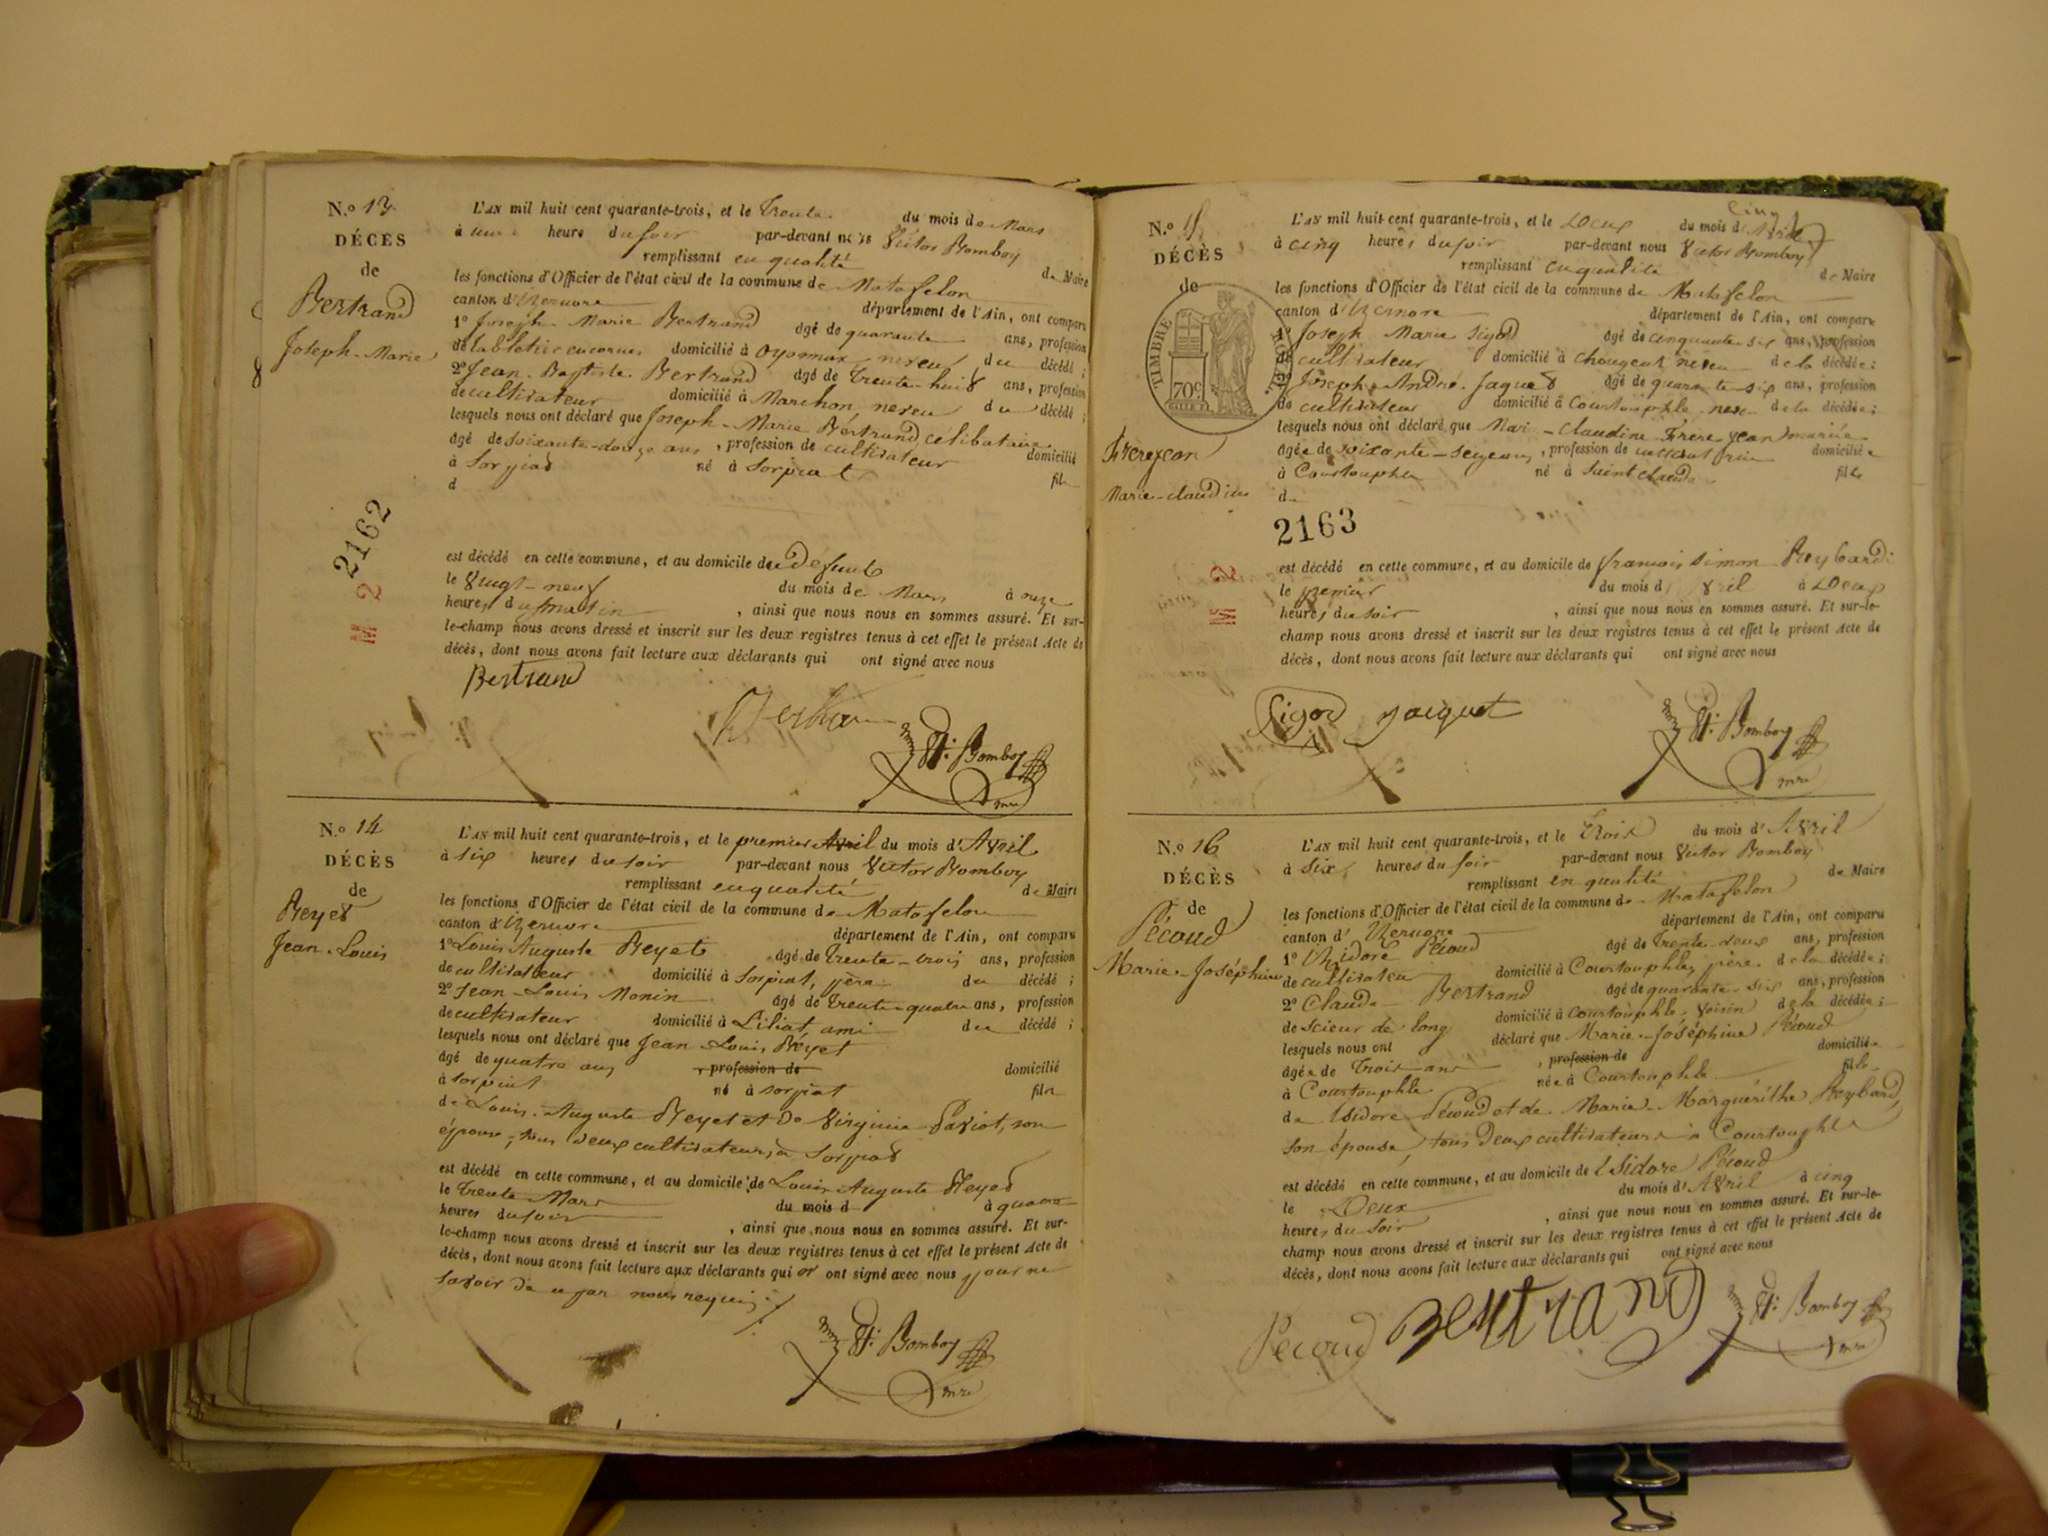 N.o 13
DÉCÈS
de
Bertrand
Joseph-Marie
2162
M 2
L'AN mil huit cent quarante-trois, et le Trente du mois de Mars
à une heure du soir par-devant nous Victor Bomboy
remplissant en qualité de Maire
les fonctions d'Officier de l'état civil de la commune de Matafelon
canton d'Izernore département de l'Ain, ont comparu
1o Joseph-Marie Bertrand âgé de quarante ans, profession
de domicilié à Oyonnax, neveu du décédé;
2o Jean-Baptiste Bertrand âgé de Trente-huit ans, profession
de cultivateur domicilié à Marchon, neveu du décédé;
lesquels nous ont déclaré que Joseph-Marie Bertrand célibataire
âgé de soixante-douze ans, profession de cultivateur domicilié
à Sorpiat né à Sorpiat fils
d
est décédé en cette commune, et au domicile du défunt
le Vingt-neuf du mois de Mars à onze
heures du matin, ainsi que nous nous en sommes assuré. Et sur-
le-champ nous avons dressé et inscrit sur les deux registres tenus à cet effet le présent Acte de
décès, dont nous avons fait lecture aux déclarants qui ont signé avec nous
Bertrand
Vr. Bomboy
mre
N.o 14
DÉCÈS
de
Reyet
Jean-Louis
L'AN mil huit cent quarante-trois, et le premier Avril du mois d'Avril
à six heures du soir par-devant nous Victor Bomboy
remplissant en qualité de Maire
les fonctions d'Officier de l'état civil de la commune de Matafelon
canton d'Izernore département de l'Ain, ont comparu
1o Louis Auguste Reyet âgé de Trente-trois ans, profession
de cultivateur domicilié à Sorpiat, père du décédé;
2o Jean-Louis Monin âgé de Trente-quatre ans, profession
de cultivateur domicilié à Liliat, ami du décédé;
lesquels nous ont déclaré que Jean-Louis Reyet
âgé de quatre ans, profession de domicilié
à Sorpiat né à Sorpiat fils
de Louis-Auguste Reyet et de Virginie Paviot, son
épouse, tous deux cultivateurs à Sorpiat
est décédé en cette commune, et au domicile de Louis Auguste Reyet
le Trente Mars du mois d à quatre
heures du soir, ainsi que nous nous en sommes assuré. Et sur-
le-champ nous avons dressé et inscrit sur les deux registres tenus à cet effet le présent Acte de
décès, dont nous avons fait lecture aux déclarants qui ont signé avec nous pour ne
savoir de ce par nous requis
Vr. Bomboy
mre
N.o 15
DÉCÈS
de
TIMBRE ROYAL
70c
Frerejean
Marie-Claudine
M 2
cinq
L'AN mil huit cent quarante-trois, et le Deux du mois d'Avril
à cinq heures du soir par-devant nous Victor Bomboy
remplissant en qualité de Maire
les fonctions d'Officier de l'état civil de la commune de Matafelon
canton d'Izernore département de l'Ain, ont comparu
1o Joseph Marie Sigod âgé de cinquante six ans, profession
de cultivateur domicilié à Chougeat neveu de la décédée;
2o Joseph-André Jaquet âgé de quarante six ans, profession
de cultivateur domicilié à Courtouphle, neveu de la décédée;
lesquels nous ont déclaré que Marie-Claudine Frerejean mariée
âgée de soixante-seize ans, profession de domiciliée
à Courtouphle né à Saint Claude fille
de
2163
est décédé en cette commune, et au domicile de françois simon Reybard
le premier du mois d'avril à Deux
heures du soir, ainsi que nous nous en sommes assuré. Et sur-le-
champ nous avons dressé et inscrit sur les deux registres tenus à cet effet le présent Acte de
décès, dont nous avons fait lecture aux déclarants qui ont signé avec nous
Sigod Jacquet
Vr. Bomboy
mre
N.o 16
DÉCÈS
de
Pécoud
Marie-Joséphine
L'AN mil huit cent quarante-trois, et le Trois du mois d'Avril
à six heures du soir par-devant nous Victor Bomboy
remplissant en qualité de Maire
les fonctions d'Officier de l'état civil de la commune de Matafelon
canton d'Izernore département de l'Ain, ont comparu
1o Isidore Pécoud âgé de Trente-deux ans, profession
de cultivateur domicilié à Courtouphle, père de la décédée;
2o Claude Bertrand âgé de quarante-six ans, profession
de scieur de long domicilié à Courtouphle, voisin de la décédée;
lesquels nous ont déclaré que Marie-Joséphine Pécoud
âgée de Trois ans, profession de domiciliée
à Courtouphle née à Courtouphle fille
de Isidore Pécoud et de Marie-Marguérithe Reybard,
son épouse, tous deux cultivateurs à Courtouphle
est décédé en cette commune, et au domicile de Isidore Pécoud
le Deux du mois d'Avril à cinq
heures du soir, ainsi que nous nous en sommes assuré. Et sur-le-
champ nous avons dressé et inscrit sur les deux registres tenus à cet effet le présent Acte de
décès, dont nous avons fait lecture aux déclarants qui ont signé avec nous
Pécoud Bertrand
Vr. Bomboy
mre